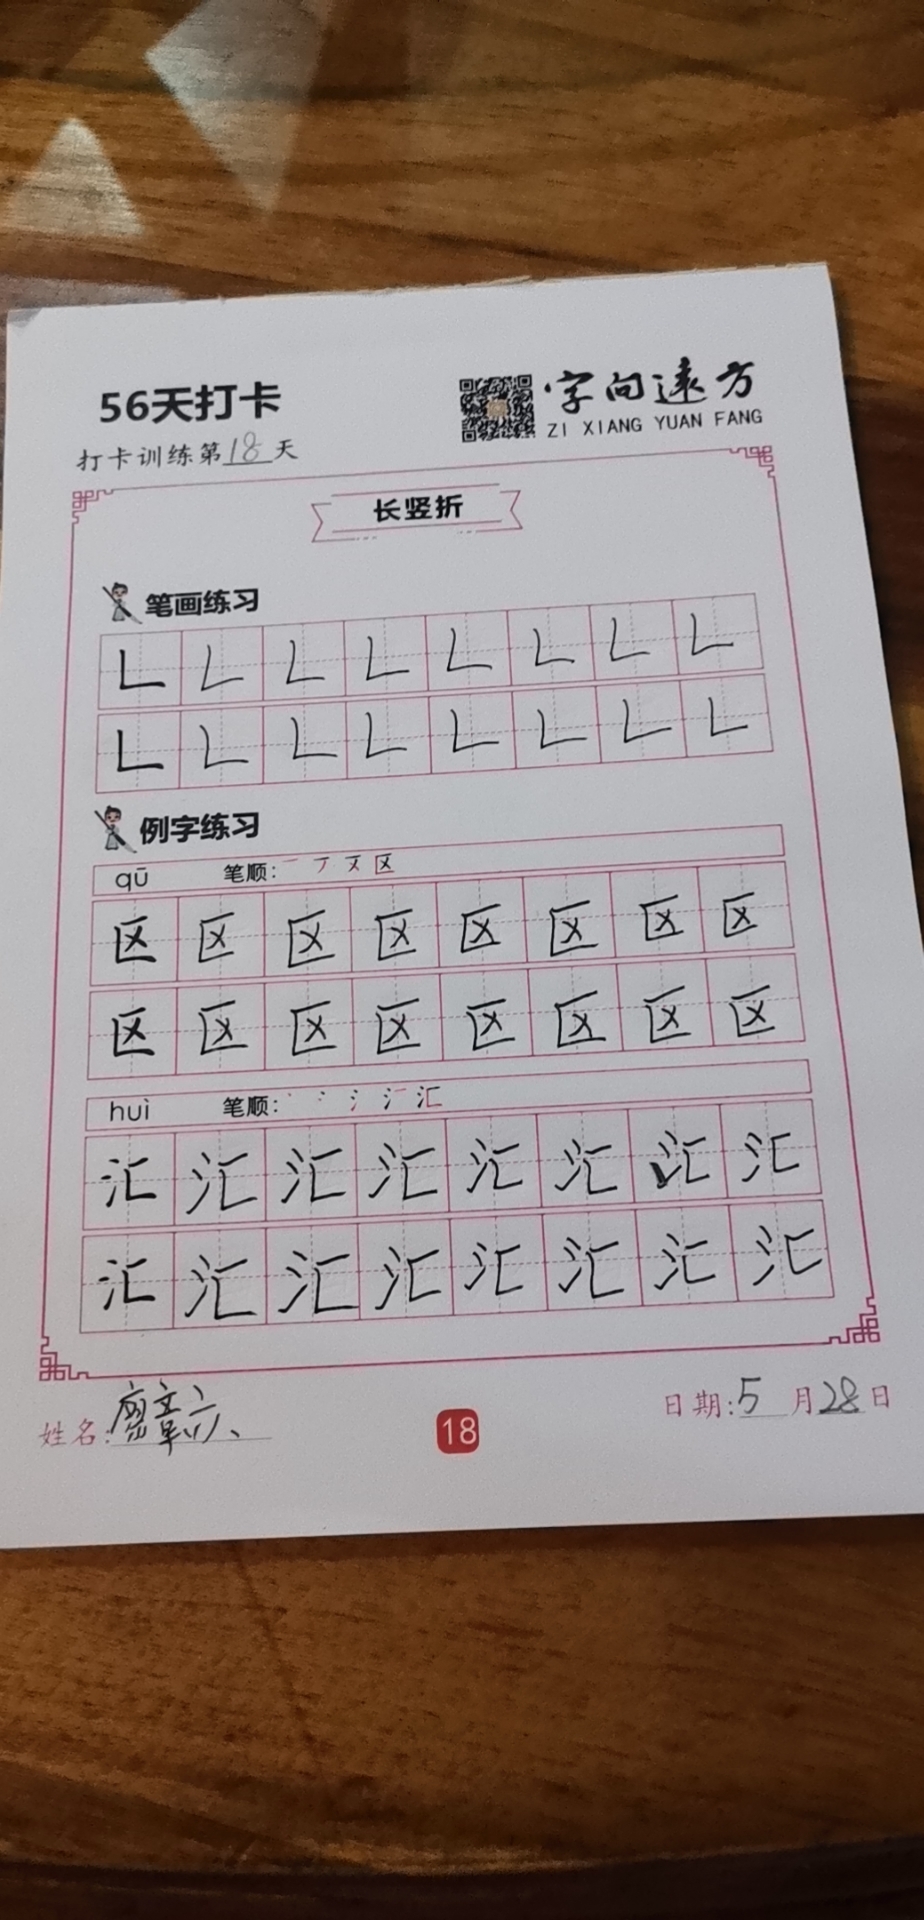 56天打卡
字向遠方
ZI XIANG YUAN FANG
打卡训练第18天
长竖折
笔画练习
例字练习
qū 笔顺: 一 丆 又 区
区 区 区 区 区 区 区 区
区 区 区 区 区 区 区 区
huì 笔顺: 丶 冫 氵 汇 汇
汇 汇 汇 汇 汇 汇 汇 汇
汇 汇 汇 汇 汇 汇 汇 汇
姓名:
18
日期:5月28日